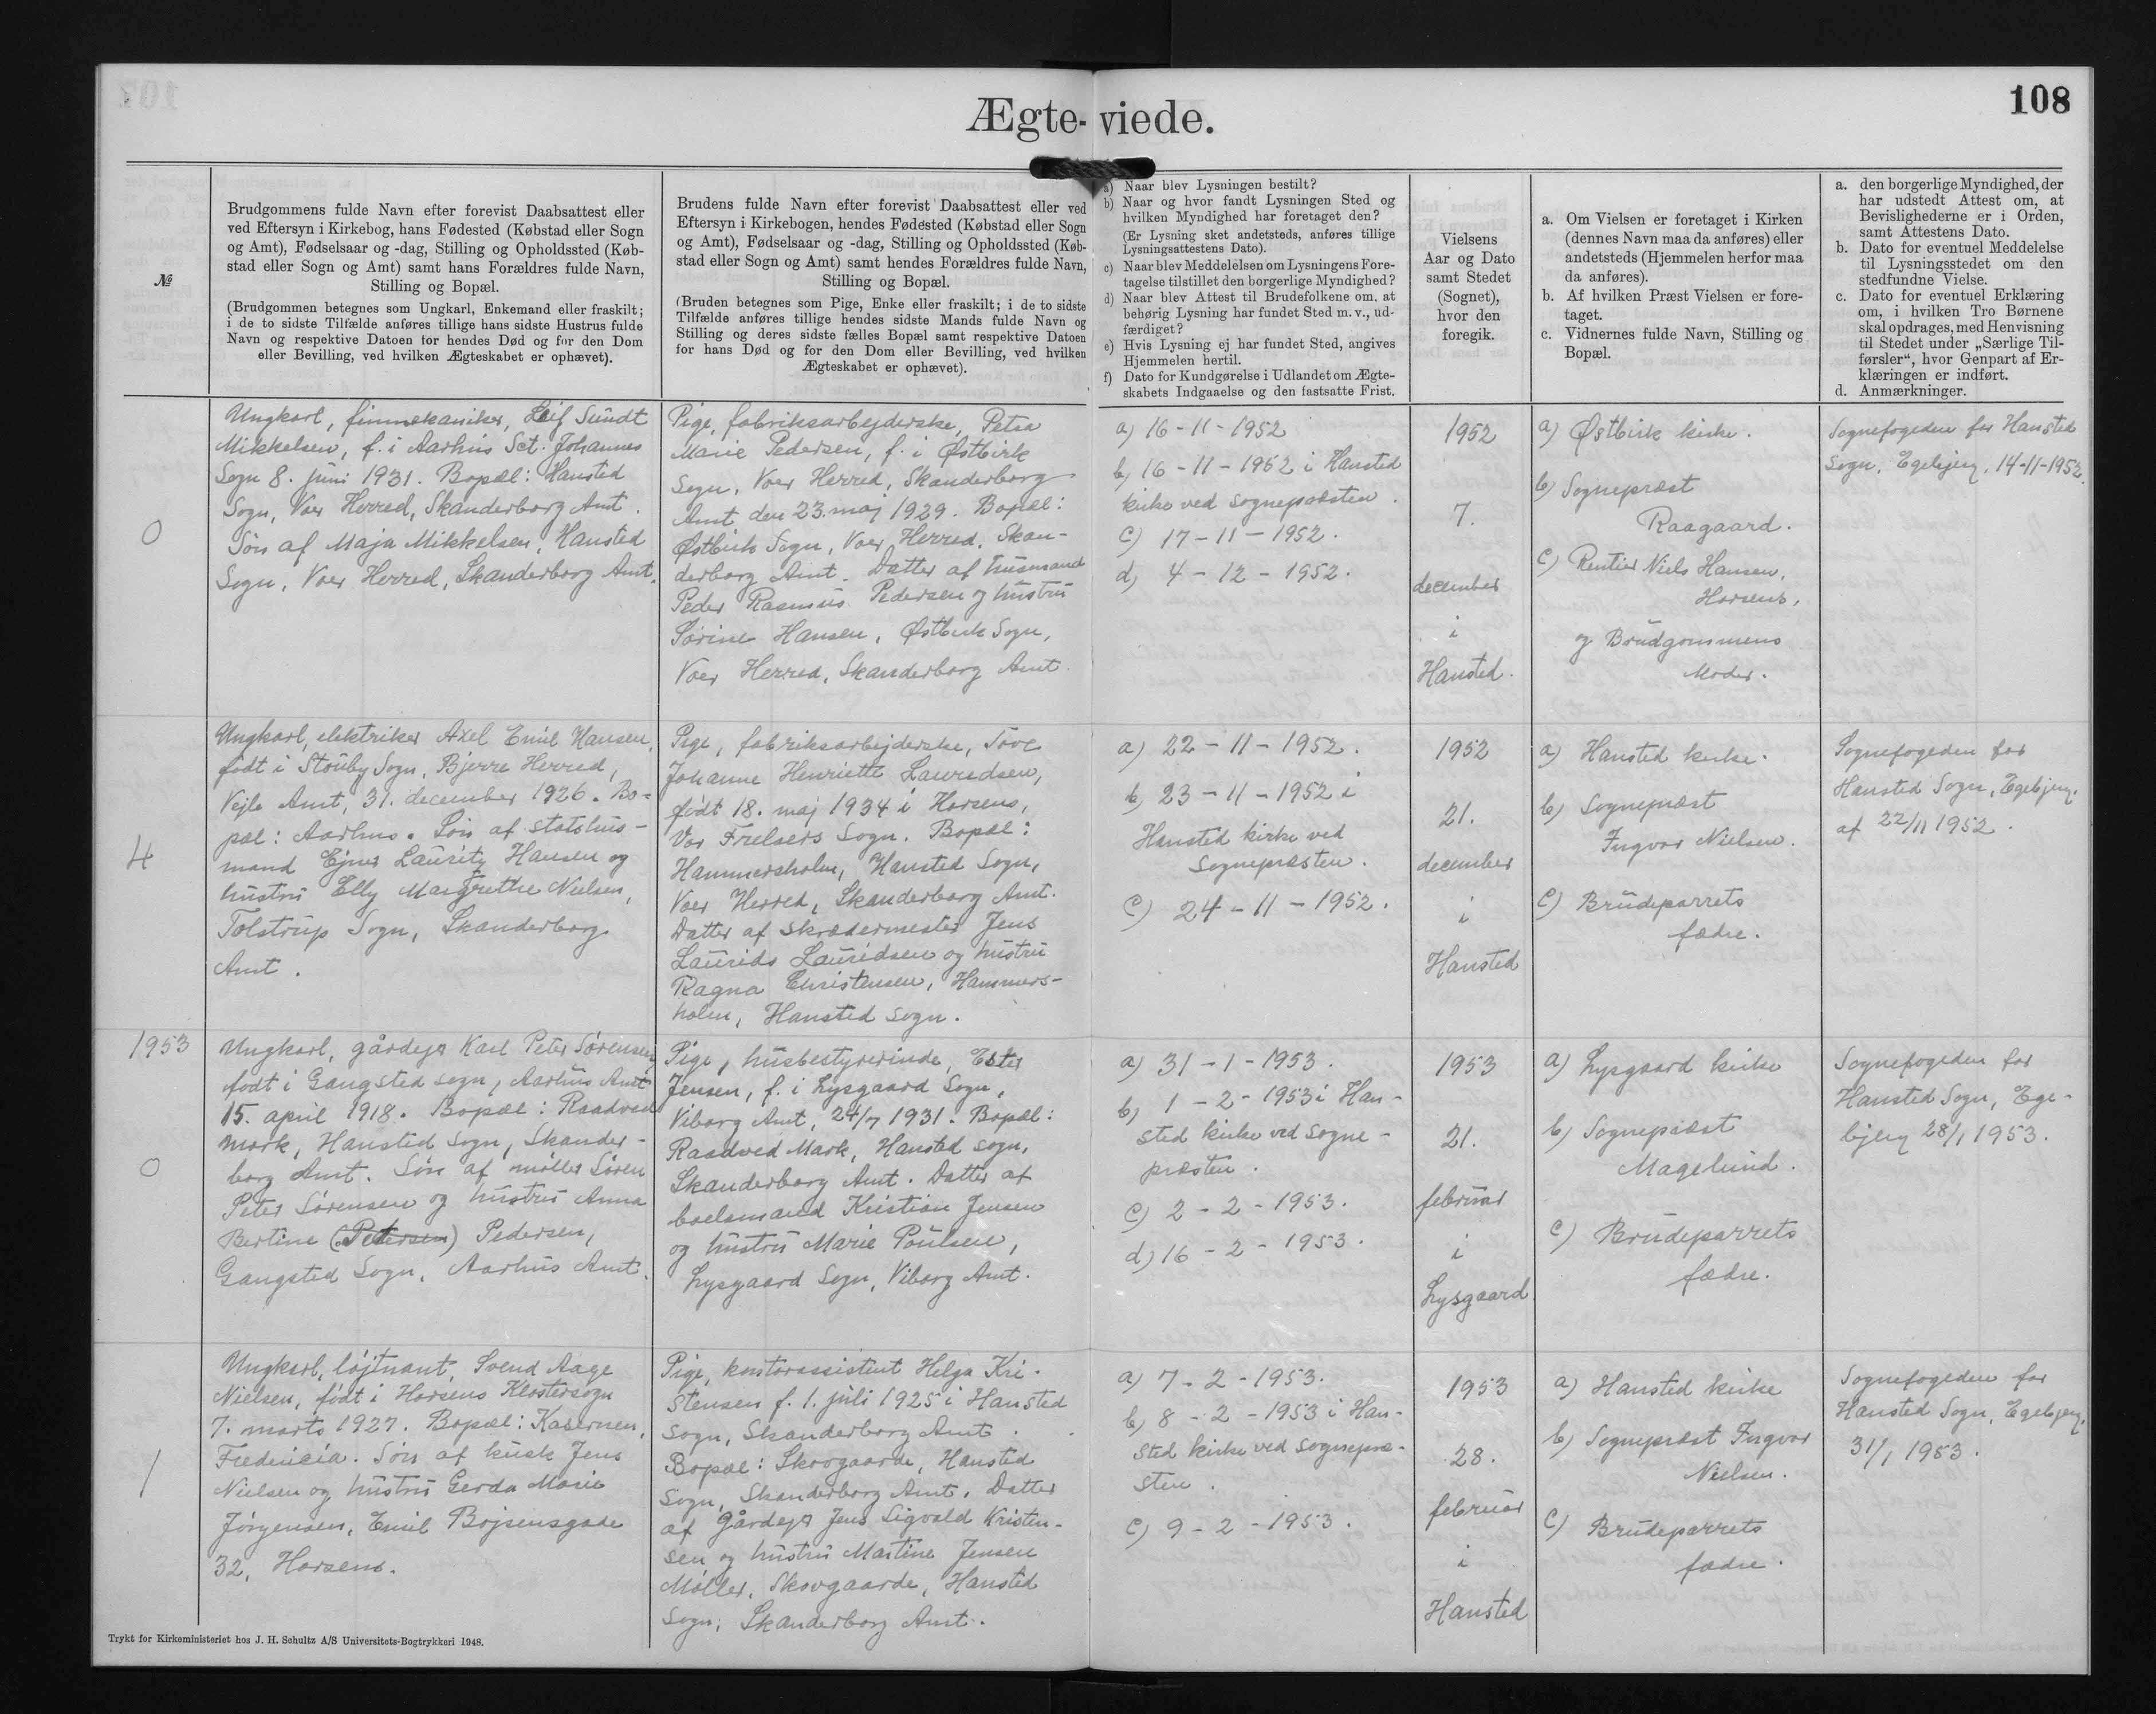 108
Ægte-viede.
№
Brudgommens fulde Navn efter forevist Daabsattest eller
ved Eftersyn i Kirkebog, hans Fødested (Købstad eller Sogn
og Amt), Fødselsaar og -dag, Stilling og Opholdssted (Køb-
stad eller Sogn og Amt) samt hans Forældres fulde Navn,
Stilling og Bopæl.
(Brudgommen betegnes som Ungkarl, Enkemand eller fraskilt;
i de to sidste Tilfælde anføres tillige hans sidste Hustrus fulde
Navn og respektive Datoen for hendes Død og for den Dom
eller Bevilling, ved hvilken Ægteskabet er ophævet).
Brudens fulde Navn efter forevist Daabsattest eller ved
Eftersyn i Kirkebogen, hendes Fødested (Købstad eller Sogn
og Amt), Fødselsaar og -dag, Stilling og Opholdssted (Køb-
stad eller Sogn og Amt) samt hendes Forældres fulde Navn,
Stilling og Bopæl.
(Bruden betegnes som Pige, Enke eller fraskilt; i de to sidste
Tilfælde anføres tillige hendes sidste Mands fulde Navn og
Stilling og deres sidste fælles Bopæl samt respektive Datoen
for hans Død og for den Dom eller Bevilling, ved hvilken
Ægteskabet er ophævet).
a) Naar blev Lysningen bestilt?
b) Naar og hvor fandt Lysningen Sted og
hvilken Myndighed har foretaget den?
(Er Lysning sket andetsteds, anføres tillige
Lysningsattestens Dato).
c) Naar blev Meddelelsen om Lysningens Fore-
tagelse tilstillet den borgerlige Myndighed?
d) Naar blev Attest til Brudefolkene om, at
behørig Lysning har fundet Sted m. v., ud-
færdiget?
e) Hvis Lysning ej har fundet Sted, angives
Hjemmelen hertil.
f) Dato for Kundgørelse i Udlandet om Ægte-
skabets Indgaaelse og den fastsatte Frist.
Vielsens
Aar og Dato
samt Stedet
(Sognet),
hvor den
foregik.
a. Om Vielsen er foretaget i Kirken
(dennes Navn maa da anføres) eller
andetsteds (Hjemmelen herfor maa
da anføres).
b. Af hvilken Præst Vielsen er fore-
taget.
c. Vidnernes fulde Navn, Stilling og
Bopæl.
a. den borgerlige Myndighed, der
har udstedt Attest om, at
Bevislighederne er i Orden,
samt Attestens Dato.
b. Dato for eventuel Meddelelse
til Lysningsstedet om den
stedfundne Vielse.
c. Dato for eventuel Erklæring
om, i hvilken Tro Børnene
skal opdrages, med Henvisning
til Stedet under „Særlige Til-
førsler“, hvor Genpart af Er-
klæringen er indført.
d. Anmærkninger.
0
Ungkarl, finmekaniker, Leif Sundt
Mikkelsen, f. i Aarhus Sct. Johannes
Sogn 8. juni 1931. Bopæl: Hansted
Sogn, Voer Herred, Skanderborg Amt.
Søn af Maja Mikkelsen, Hansted
Sogn, Voer Herred, Skanderborg Amt.
Pige, fabriksarbejderske, Petra
Marie Pedersen, f. i Østbirk
Sogn, Voer Herred, Skanderborg
Amt den 23. maj 1929. Bopæl:
Østbirk Sogn, Voer Herred, Skan-
derborg Amt. Datter af husmand
Peder Rasmus Pedersen og hustru
Sørine Hansen, Østbirk Sogn,
Voer Herred, Skanderborg Amt.
a) 16-11-1952
b) 16-11-1952 i Hansted
kirke ved sognepræsten.
c) 17-11-1952.
d) 4-12-1952.
1952
7.
december
i
Hansted.
a) Østbirk kirke.
b) Sognepræst
Raagaard.
c) Rentier Niels Hansen,
Horsens,
og Brudgommens
Moder.
Sognefogeden for Hansted
Sogn, Egebjerg, 14-11-1952.
4
Ungkarl, elektriker Axel Emil Hansen,
født i Stouby Sogn, Bjerre Herred,
Vejle Amt, 31. december 1926. Bo-
pæl: Aarhus. Søn af statshus-
mand Ejner Lauritz Hansen og
hustru Elly Margrethe Nielsen,
Tolstrup Sogn, Skanderborg
Amt.
Pige, fabriksarbejderske, Tove
Johanne Henriette Lauridsen,
født 18. maj 1934 i Horsens,
Vor Frelsers Sogn. Bopæl:
Hammersholm, Hansted Sogn,
Voer Herred, Skanderborg Amt.
Datter af skrædermester Jens
Laurids Lauridsen og hustru
Ragna Christensen, Hammers-
holm, Hansted sogn.
a) 22-11-1952.
b) 23-11-1952 i
Hansted kirke ved
Sognepræsten.
c) 24-11-1952.
1952
21.
december
i
Hansted
a) Hansted kirke.
b) Sognepræst
Ingvar Nielsen.
c) Brudeparrets
fædre.
Sognefogeden for
Hansted Sogn, Egebjerg.
af 22/11 1952.
1953
0
Ungkarl, gårdejer Karl Peter Sørensen,
født i Gangsted sogn, Aarhus Amt
15. april 1918. Bopæl: Raadved
Mark, Hansted sogn, Skander-
borg Amt. Søn af møller Søren
Peter Sørensen og hustru Anna
Bertine (Petersen) Pedersen,
Gangsted Sogn, Aarhus Amt.
Pige, husbestyrerinde, Ester
Jensen, f. i Lysgaard Sogn,
Viborg Amt, 24/7 1931. Bopæl:
Raadved Mark, Hansted sogn,
Skanderborg Amt. Datter af
boelsmand Kristian Jensen
og hustru Marie Poulsen,
Lysgaard Sogn, Viborg Amt.
a) 31-1-1953.
b) 1-2-1953 i Han-
sted kirke ved Sogne-
præsten.
c) 2-2-1953.
d) 16-2-1953.
1953
21.
februar
i
Lysgaard.
a) Lysgaard kirke
b) Sognepræst
Magelund.
c) Brudeparrets
fædre.
Sognefogeden for
Hansted Sogn, Ege-
bjerg 28/1 1953.
1
Ungkarl, løjtnant, Svend Aage
Nielsen, født i Horsens Klostersogn
7. marts 1927. Bopæl: Kasernen,
Fredericia. Søn af kusk Jens
Nielsen og hustru Gerda Marie
Jørgensen, Emil Bojsensgade
32, Horsens.
Pige, kontorassistent Helga Kri-
stensen f. 1. juli 1925 i Hansted
Sogn, Skanderborg Amt.
Bopæl: Skovgaarde, Hansted
Sogn, Skanderborg Amt. Datter
af gårdejer Jens Sigvald Kristen-
sen og hustru Martine Jensen
Møller, Skovgaarde, Hansted
Sogn, Skanderborg Amt.
a) 7-2-1953.
b) 8-2-1953 i Han-
sted kirke ved sognepræ-
sten.
c) 9-2-1953.
1953
28.
februar
i
Hansted
a) Hansted kirke
b) Sognepræst Ingvar
Nielsen.
c) Brudeparrets
fædre.
Sognefogeden for
Hansted Sogn, Egebjerg,
31/1 1953.
Trykt for Kirkeministeriet hos J. H. Schultz A/S Universitets-Bogtrykkeri 1948.